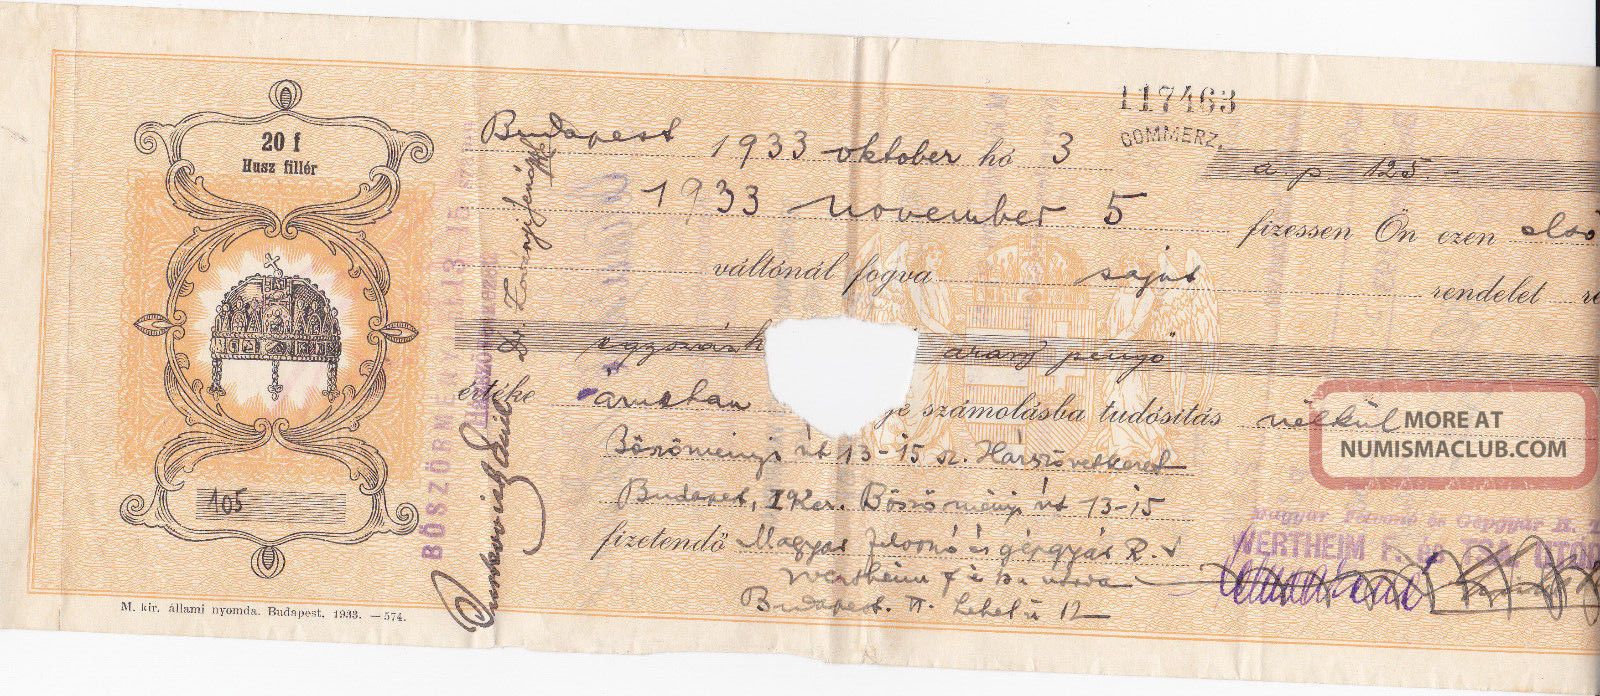 20 f
Husz fillér
105
BÖSZÖRMÉNYI 13-15
117463
COMMERZ.
Budapest 1933 oktober hó 3
a p 125.-
1933 november 5 fizessen Ön ezen első
váltónál fogva saját rendelet
egyszázh arany pengő
értéke áruban számolásba tudósítás nélkül
Böszörményi út 13-15 sz. Házszövetkezet
Budapest, I Ker. Böszörményi út 13-15
fizetendő Magyar Felvonó és gépgyár R. t
Wertheim F és Tsa utóda
Budapest. VI. Lehel u 12
Magyar Felvonó és Gépgyár R. T
WERTHEIM F. és TSA UTÓD
M. kir. állami nyomda. Budapest. 1933. — 574.
MORE AT
NUMISMACLUB.COM